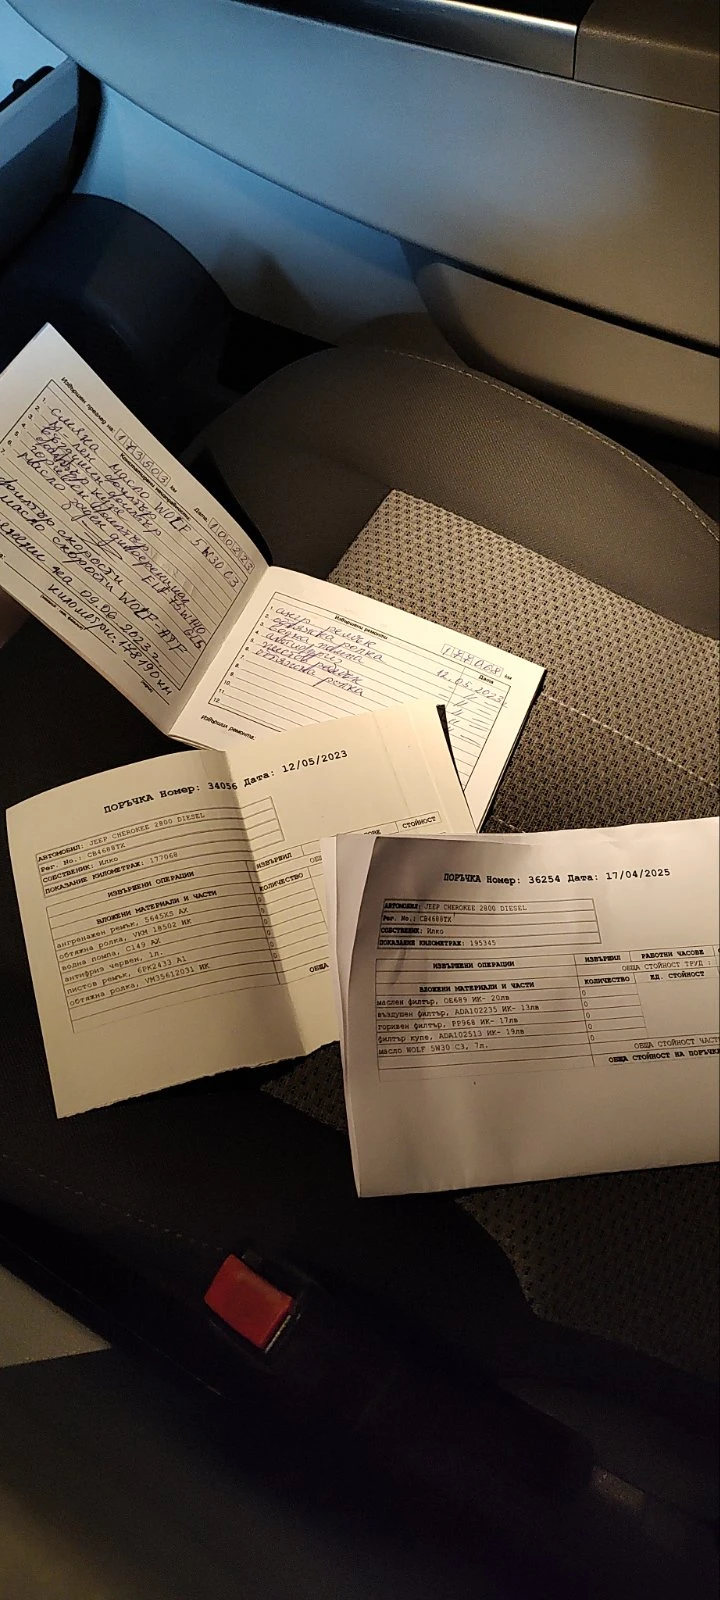 Извършен преглед на: 173503 км
Дата: 100223
1. смяна масло WOLF 5W30 C3
2. маслен филтър
3. въздушен филтър
4. филтър купе
5. горивен филтър
6. масло заден диференциал
7.
филтър скорости
масло скорости WOLF ATF
сменени на 09.06.2023г.
километри: 178190 км
Извършени ремонти
км
Дата
1. анг. ремък 12.05.2023г.
2. обтяжна ролка
3. водна помпа
4. антифриз
5. пистов ремък
6. обтяжна ролка
7.
8.
9.
10.
11.
12.
Извършил ремонта:
ПОРЪЧКА Номер: 34056 Дата: 12/05/2023
АВТОМОБИЛ: JEEP CHEROKEE 2800 DIESEL
Рег. No.: CB4688TX
СОБСТВЕНИК: Илко
ПОКАЗАНИЕ КИЛОМЕТРАЖ: 177068
ИЗВЪРШЕНИ ОПЕРАЦИИ ИЗВЪРШИЛ СТОЙНОСТ
ВЛОЖЕНИ МАТЕРИАЛИ И ЧАСТИ КОЛИЧЕСТВО
ангренажен ремък, 5645XS AX 0
обтяжна ролка, VKM 18502 ИК 0
водна помпа, C149 AX 0
антифриз червен, 1л. 0
пистов ремък, 6PK2433 A1 0
обтяжна ролка, VM35612031 ИК 0
ОБЩА
ПОРЪЧКА Номер: 36254 Дата: 17/04/2025
АВТОМОБИЛ: JEEP CHEROKEE 2800 DIESEL
Рег. No.: CB4688TX
СОБСТВЕНИК: Илко
ПОКАЗАНИЕ КИЛОМЕТРАЖ: 195345
ИЗВЪРШЕНИ ОПЕРАЦИИ ИЗВЪРШИЛ РАБОТНИ ЧАСОВЕ
ОБЩА СТОЙНОСТ ТРУД :
ВЛОЖЕНИ МАТЕРИАЛИ И ЧАСТИ КОЛИЧЕСТВО ЕД. СТОЙНОСТ
маслен филтър, OE689 ИК- 20лв 0
въздушен филтър, ADA102235 ИК- 13лв 0
горивен филтър, PP968 ИК- 17лв 0
филтър купе, ADA102513 ИК- 19лв 0
масло WOLF 5W30 C3, 7л. 0
ОБЩА СТОЙНОСТ ЧАСТ
ОБЩА СТОЙНОСТ НА ПОРЪЧК